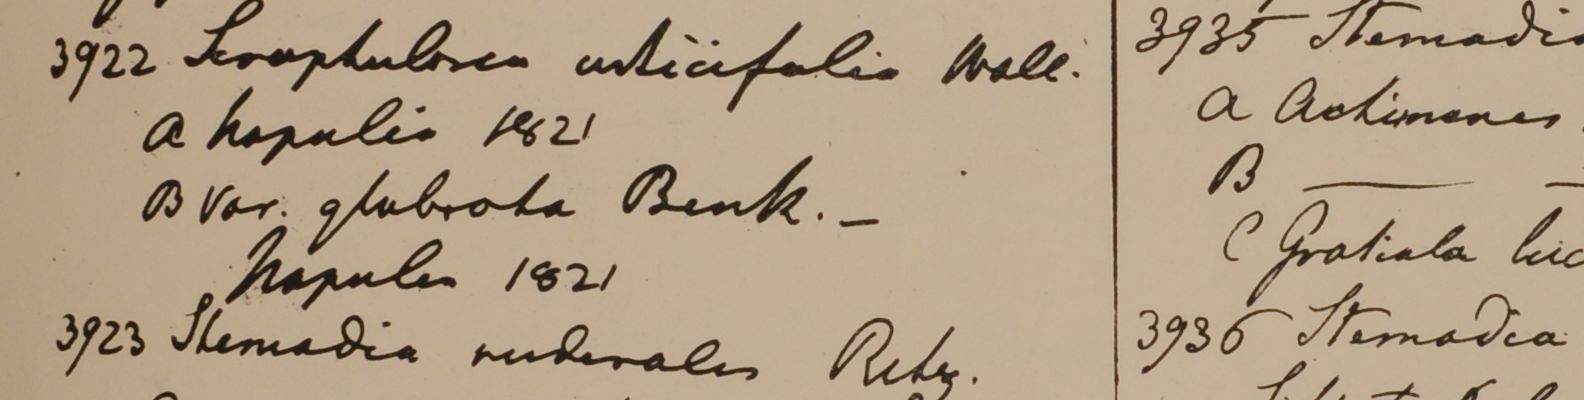 3922 Scrophularea urticifolia Wall.
A Napalia 1821
B Var. glabrata Benth. –
Napalea 1821
3923 Stemadia ruderales Retz.
3935 Stemadia
A Achimenes
B —
C Gratiola
3936 Stemodia